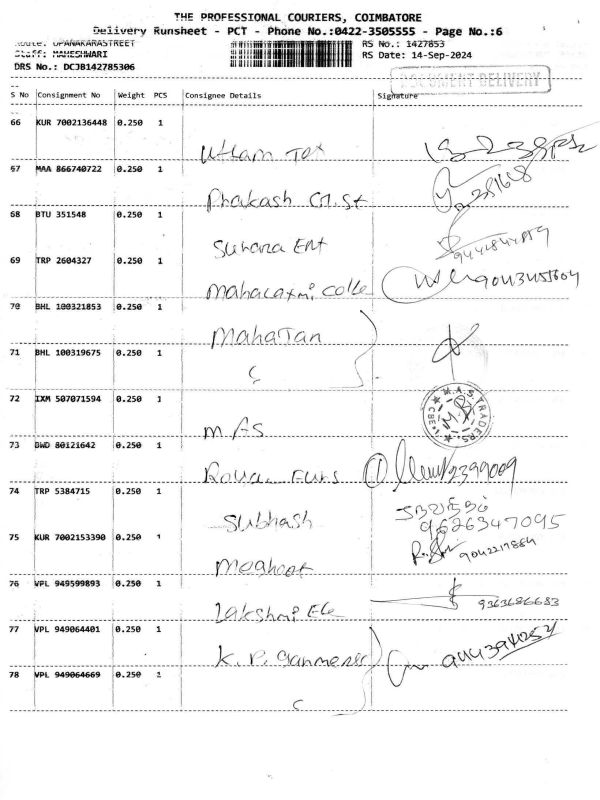 THE PROFESSIONAL COURIERS, COIMBATORE
Delivery Runsheet - PCT - Phone No.:0422-3505555 - Page No.:6
Route: UPANAKARASTREET RS No.: 1427853
Staff: MAHESHWARI RS Date: 14-Sep-2024
DRS No.: DCJB142785306
DOCUMENT DELIVERY
S No Consignment No Weight PCS Consignee Details Signature
66 KUR 7002136448 0.250 1
Uttam Tex
67 MAA 866740722 0.250 1
Prakash
68 BTU 351548 0.250 1
Suhara Ent
69 TRP 2604327 0.250 1
Mahalaxmi Colle
70 BHL 100321853 0.250 1
Mahatan
71 BHL 100319675 0.250 1
72 IXM 507071594 0.250 1
A.S. TRADERS
CBE
M. AS
73 BWD 80121642 0.250 1
Furs 2399009
74 TRP 5384715 0.250 1
Subhash
9626347095
75 KUR 7002153390 0.250 1
9042217884
76 VPL 949599893 0.250 1
Lakshmi Ele 9363686683
77 VPL 949064401 0.250 1
K. P. Garments
78 VPL 949064669 0.250 1